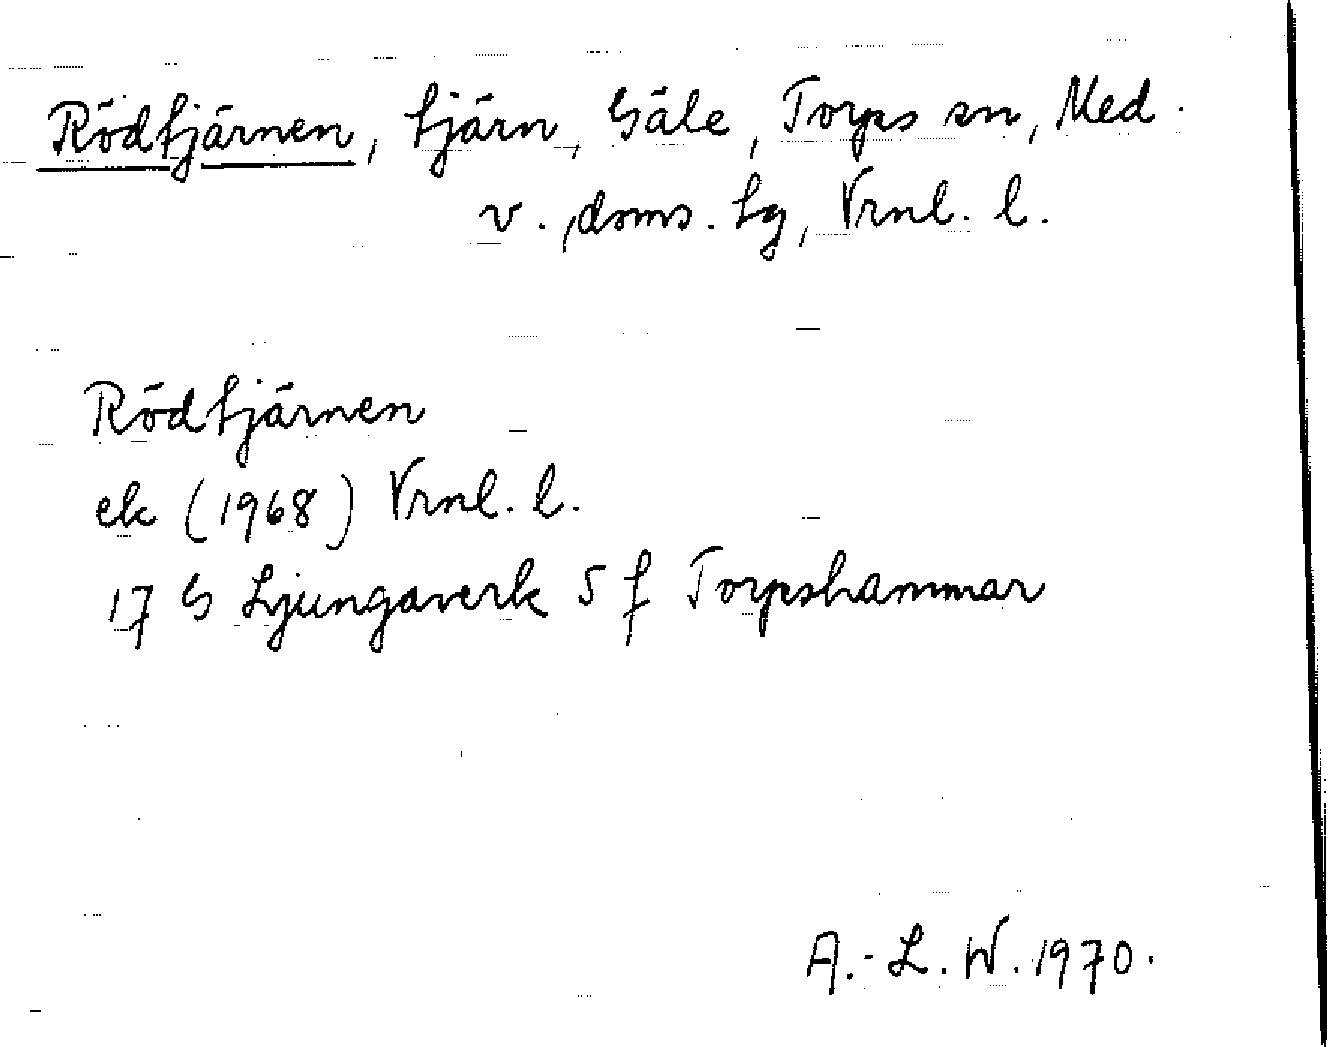 Rödtjärnen, tjärn, Gäle, Torps sn, Med.
v. doms. hg, Vrnl. l.
Rödtjärnen
ek (1968) Vrnl. l.
17 G Ljungaverk 5 f Torpshammar
A.-L. W. 1970.